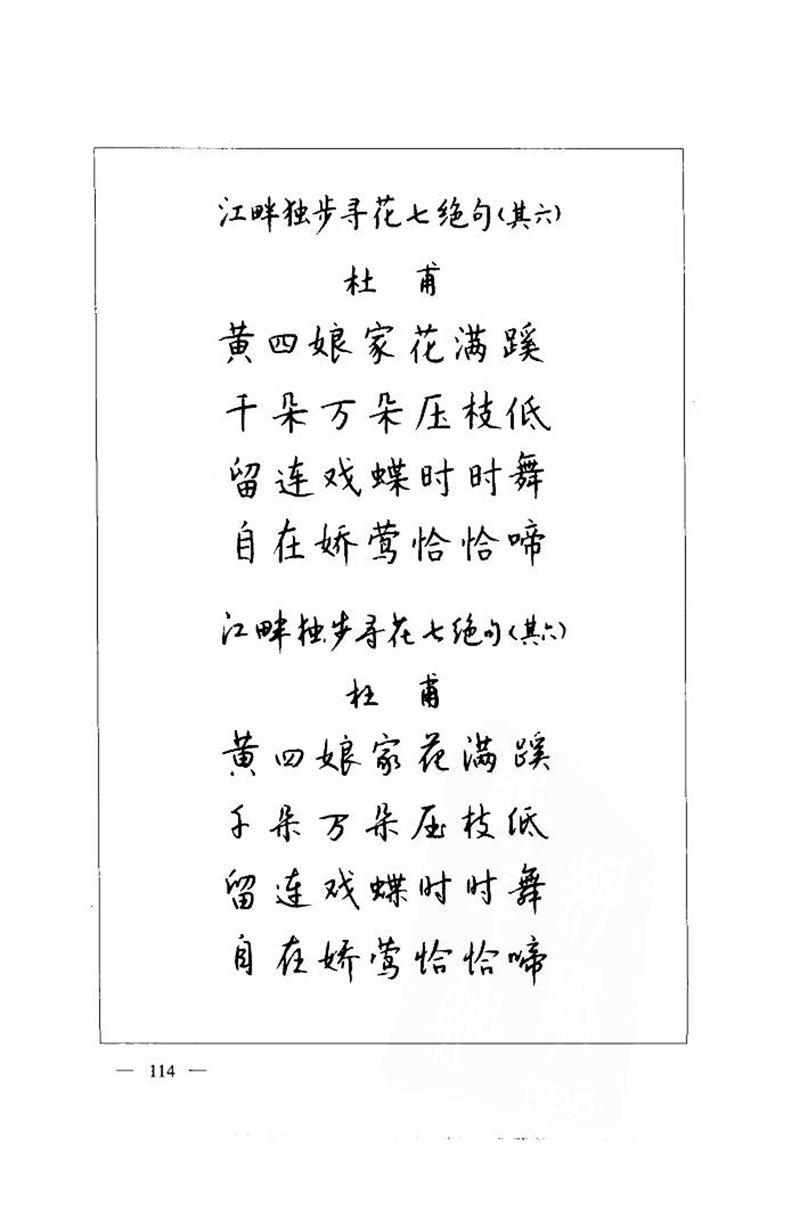 江畔独步寻花七绝句(其六)
杜 甫
黄四娘家花满蹊
千朵万朵压枝低
留连戏蝶时时舞
自在娇莺恰恰啼
江畔独步寻花七绝句(其六)
杜 甫
黄四娘家花满蹊
千朵万朵压枝低
留连戏蝶时时舞
自在娇莺恰恰啼
— 114 —